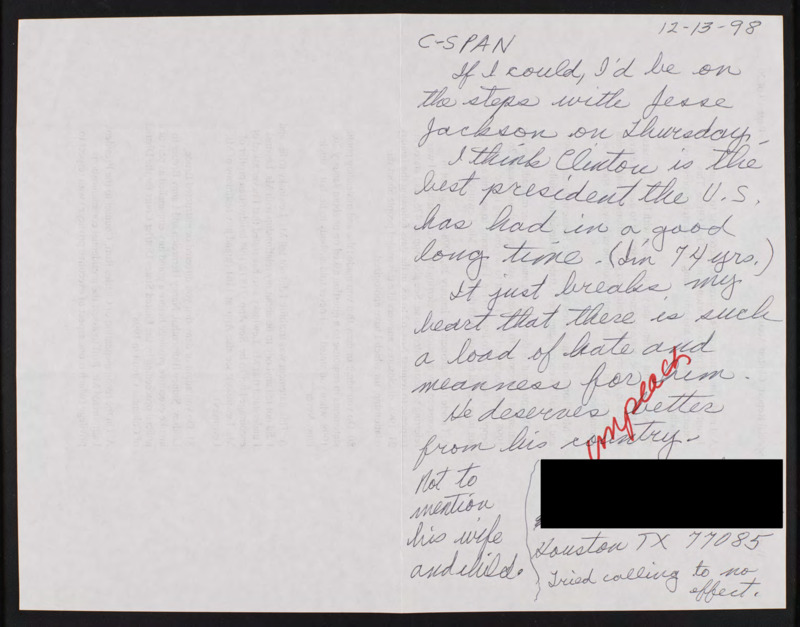 12-13-98
C-SPAN
If I could, I'd be on
the steps with Jesse
Jackson on Thursday.
I think Clinton is the
best president the U.S.
has had in a good
long time. (I'm 74 yrs.)
It just breaks my
heart that there is such
a load of hate and
meanness for him.
He deserves better
from his country.
impeach
Not to
mention
his wife
and child.
Houston TX 77085
Tried calling to no
effect.